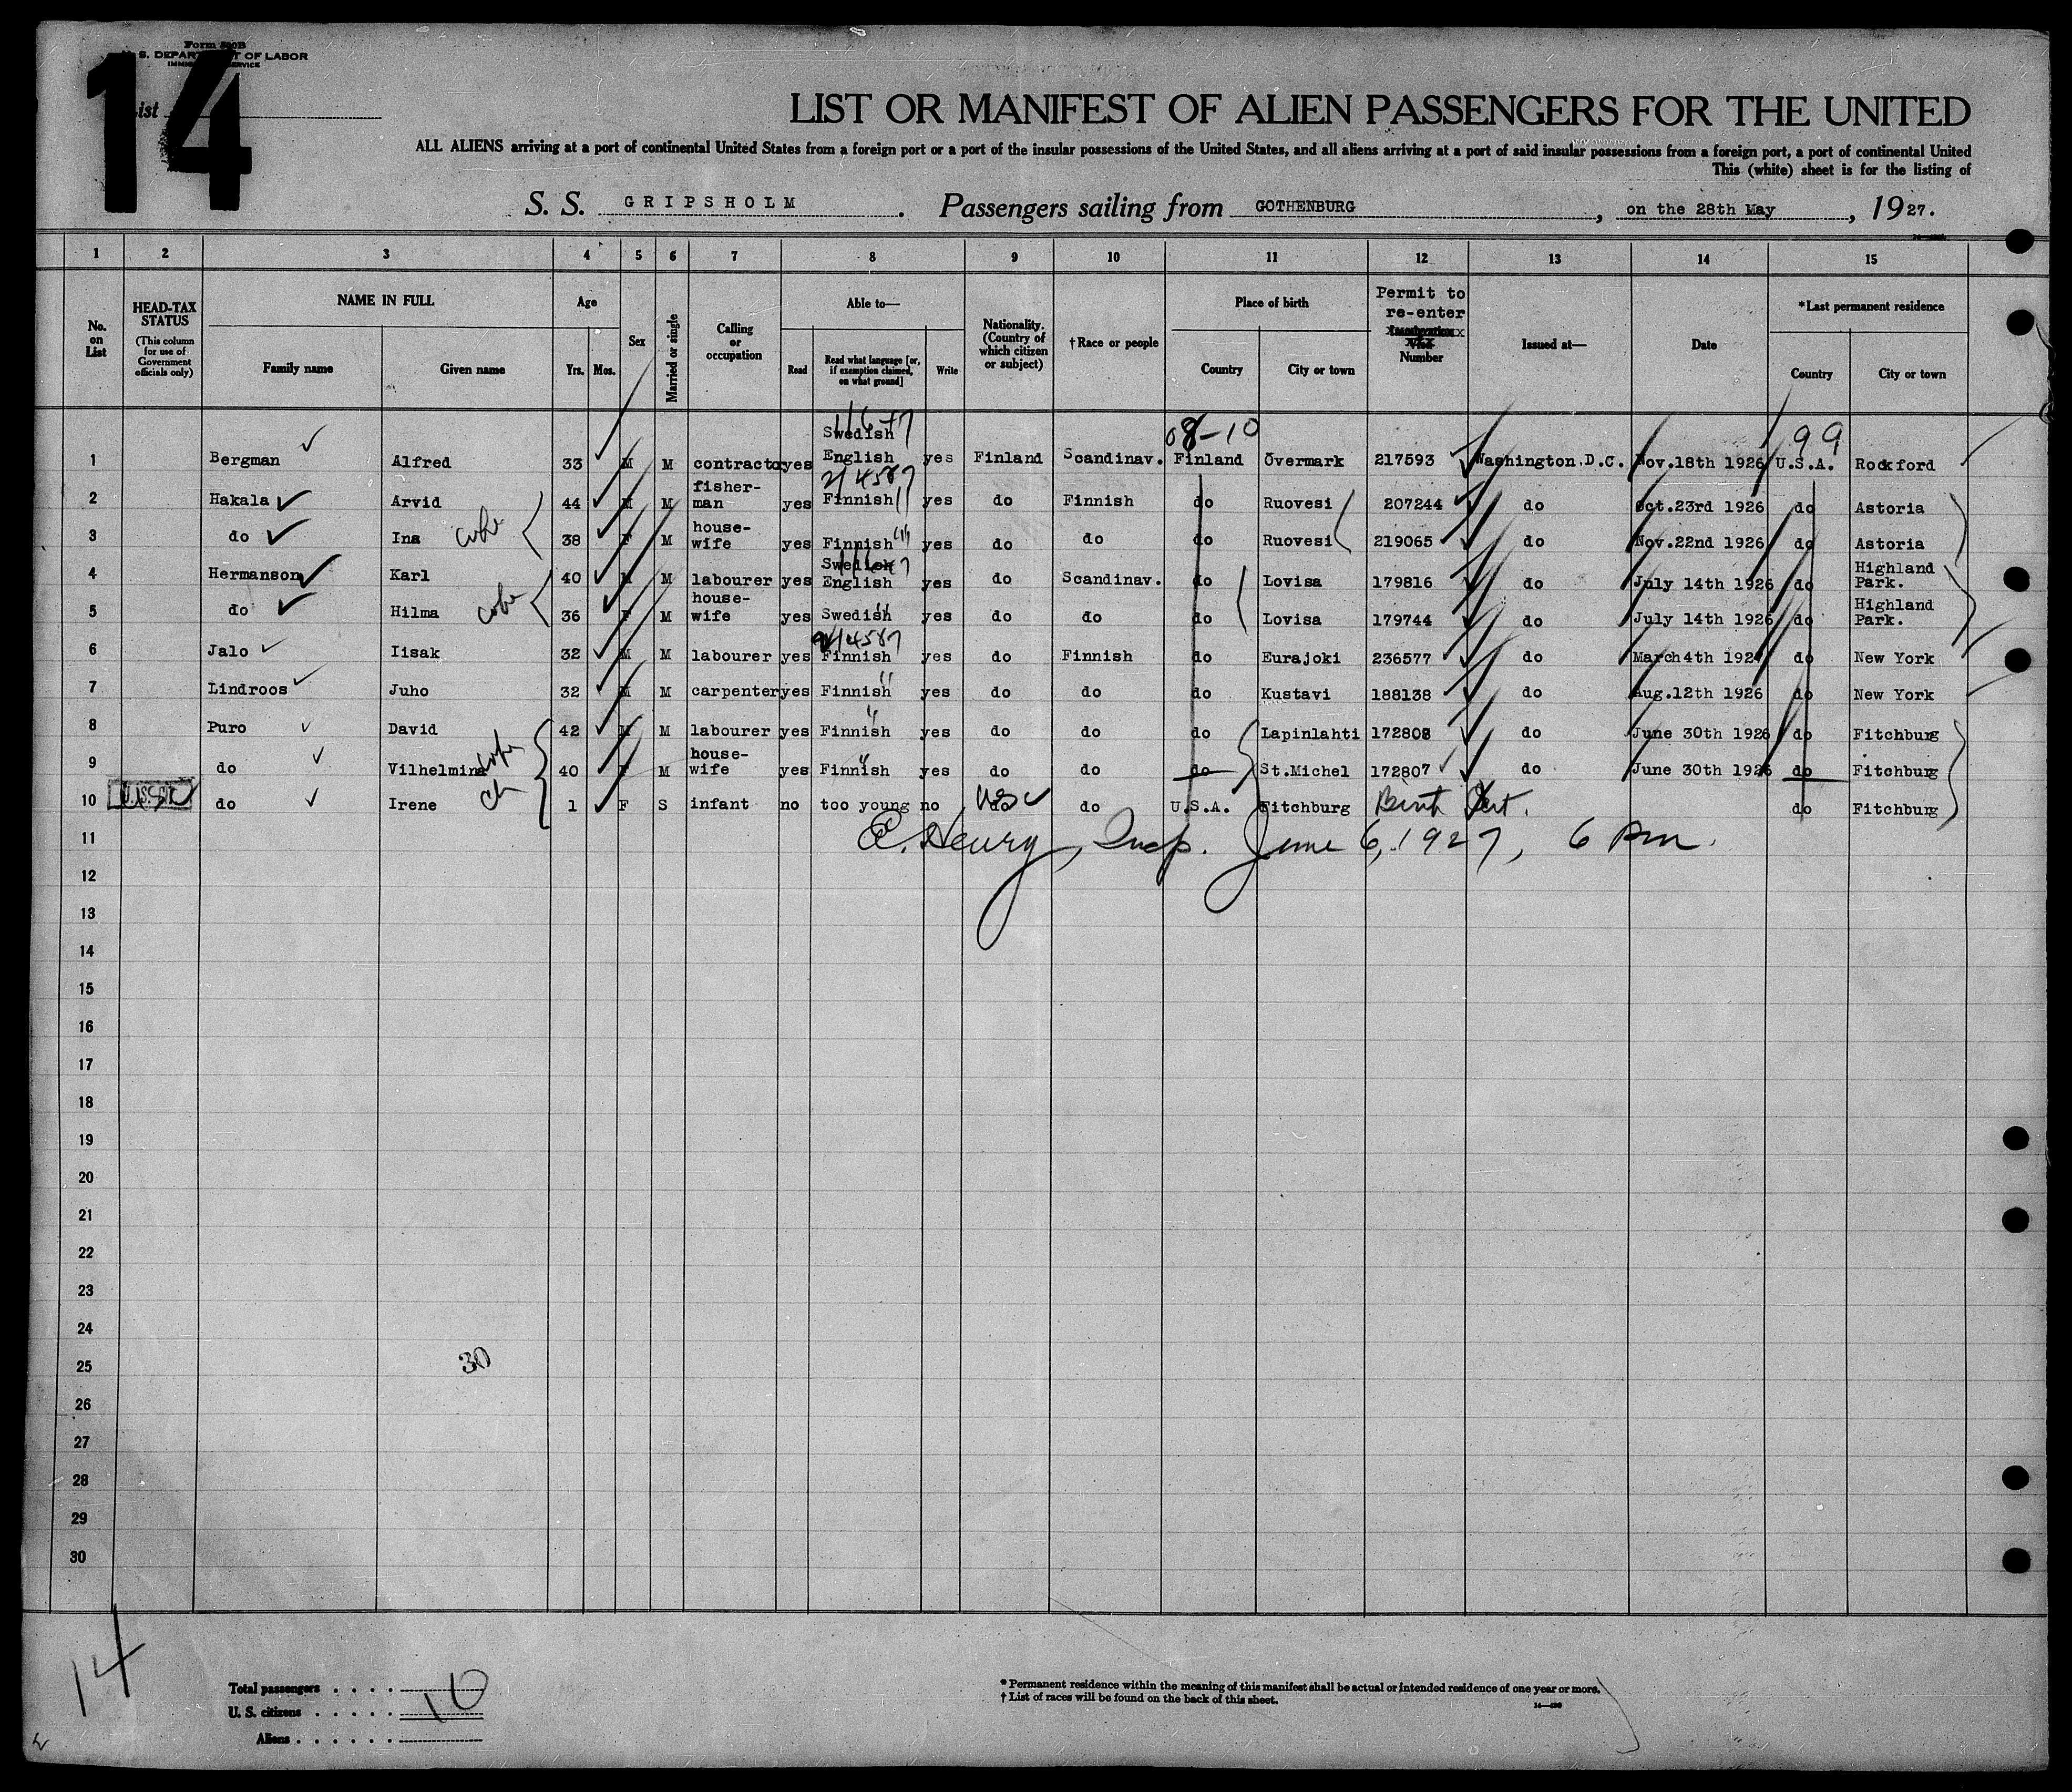 Form 500B
U. S. DEPARTMENT OF LABOR
IMMIGRATION SERVICE
List
14
LIST OR MANIFEST OF ALIEN PASSENGERS FOR THE UNITED
ALL ALIENS arriving at a port of continental United States from a foreign port or a port of the insular possessions of the United States, and all aliens arriving at a port of said insular possessions from a foreign port, a port of continental United
This (white) sheet is for the listing of
S. S. GRIPSHOLM. Passengers sailing from GOTHENBURG, on the 28th May, 1927.
1 2 3 4 5 6 7 8 9 10 11 12 13 14 15
No. on List
HEAD-TAX STATUS (This column for use of Government officials only)
NAME IN FULL Family name Given name
Age Yrs. Mos.
Sex
Married or single
Calling or occupation
Able to— Read Read what language [or, if exemption claimed, on what ground] Write
Nationality. (Country of which citizen or subject)
†Race or people
Place of birth Country City or town
Permit to re-enter Number
Issued at—
Date
*Last permanent residence Country City or town
08-10 99
1 Bergman Alfred 33 M M contractor yes Swedish English yes Finland Scandinav. Finland Övermark 217593 Washington.D.C. Nov.18th 1926 U.S.A. Rockford
2 Hakala Arvid 44 M M fisher-man yes Finnish yes do Finnish do Ruovesi 207244 do Oct.23rd 1926 do Astoria
3 do Ina 38 F M house-wife yes Finnish yes do do do Ruovesi 219065 do Nov.22nd 1926 do Astoria
4 Hermanson Karl 40 M M labourer yes Swedish English yes do Scandinav. do Lovisa 179816 do July 14th 1926 do Highland Park.
5 do Hilma 36 F M house-wife yes Swedish yes do do do Lovisa 179744 do July 14th 1926 do Highland Park.
6 Jalo Iisak 32 M M labourer yes Finnish yes do Finnish do Eurajoki 236577 do March 4th 1927 do New York
7 Lindroos Juho 32 M M carpenter yes Finnish yes do do do Kustavi 188138 do Aug.12th 1926 do New York
8 Puro David 42 M M labourer yes Finnish yes do do do Lapinlahti 172808 do June 30th 1926 do Fitchburg
9 do Vilhelmina 40 F M house-wife yes Finnish yes do do do St.Michel 172807 do June 30th 1926 do Fitchburg
10 USC do Irene 1 F S infant no too young no USC do U.S.A. Fitchburg Birth Cert. do Fitchburg
11 E. Henry, Insp. June 6, 1927, 6 PM.
12
13
14
15
16
17
18
19
20
21
22
23
24
25 30
26
27
28
29
30
14
Total passengers . . . . 10
U. S. citizens . . . . .
Aliens . . . . . .
* Permanent residence within the meaning of this manifest shall be actual or intended residence of one year or more.
† List of races will be found on the back of this sheet.